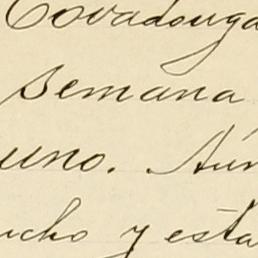 Covadonga
semana
uno. Aún
ucho y esta